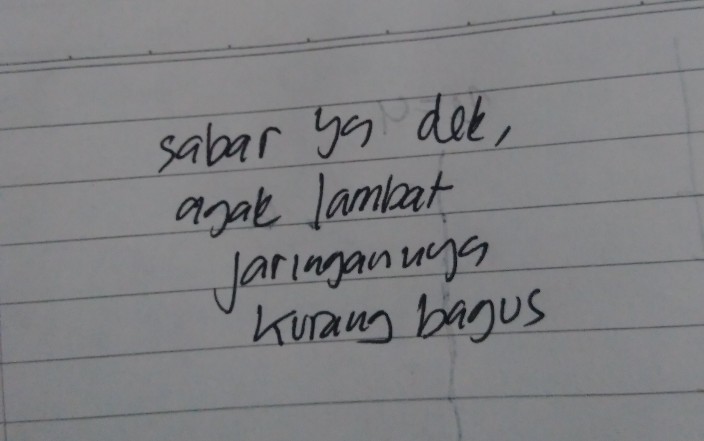 sabar ya dek,
agak lambat
jaringannya
kurang bagus